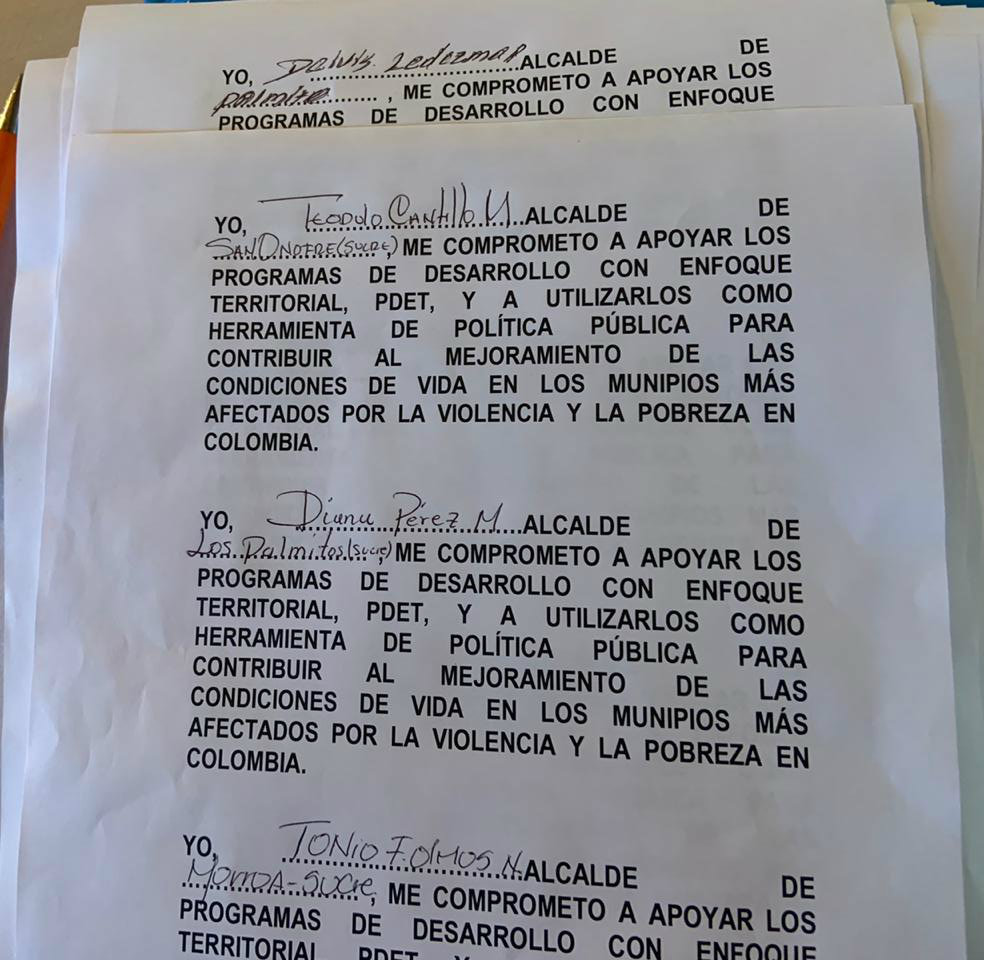 YO, Deluis Ledezma ALCALDE DE
Palmito.........., ME COMPROMETO A APOYAR LOS
PROGRAMAS DE DESARROLLO CON ENFOQUE
YO, Teodulo Cantillo M....ALCALDE DE
San Onofre (Sucre), ME COMPROMETO A APOYAR LOS
PROGRAMAS DE DESARROLLO CON ENFOQUE
TERRITORIAL, PDET, Y A UTILIZARLOS COMO
HERRAMIENTA DE POLÍTICA PÚBLICA PARA
CONTRIBUIR AL MEJORAMIENTO DE LAS
CONDICIONES DE VIDA EN LOS MUNIPIOS MÁS
AFECTADOS POR LA VIOLENCIA Y LA POBREZA EN
COLOMBIA.
YO, Diana Pérez M....ALCALDE DE
Los Palmitos (Sucre), ME COMPROMETO A APOYAR LOS
PROGRAMAS DE DESARROLLO CON ENFOQUE
TERRITORIAL, PDET, Y A UTILIZARLOS COMO
HERRAMIENTA DE POLÍTICA PÚBLICA PARA
CONTRIBUIR AL MEJORAMIENTO DE LAS
CONDICIONES DE VIDA EN LOS MUNIPIOS MÁS
AFECTADOS POR LA VIOLENCIA Y LA POBREZA EN
COLOMBIA.
YO, Tonio F. Olmos N. ALCALDE DE
Morroa-Sucre, ME COMPROMETO A APOYAR LOS
PROGRAMAS DE DESARROLLO CON ENFOQUE
TERRITORIAL PDET Y